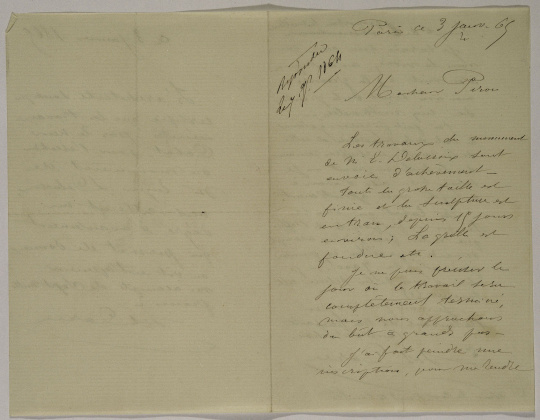 Paris ce 3 Janv. 65
répondu
le 7 1864
Monsieur Piron
Les travaux du monument
de M. E. Delacroix sont
en voie d'achèvement_
tout la grosse taille est
finie et la sculpture est
en train, depuis 15 jours
environs; La grille est
fondue etc.
Je ne puis préciser le
jour où le travail sera
complètement terminé,
mais nous approchons
du but à grands pas_
J'ai fait peindre une
inscription, pour me rendre